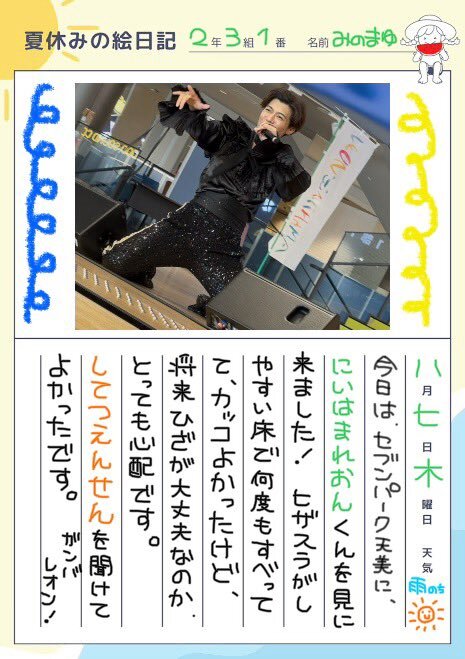 夏休みの絵日記
2年3組1番 名前 みのまゆ
八月七日木曜日 天気 雨のち
今日は、セブンパーク天美に、
にいはまれおんくんを見に
来ました！ ヒザスラがし
やすい床で何度もすべって
て、カッコよかったけど、
将来ひざが大丈夫なのか、
とっても心配です。
してつえんせんを聞けて
よかったです。
ガンバ
レオン！